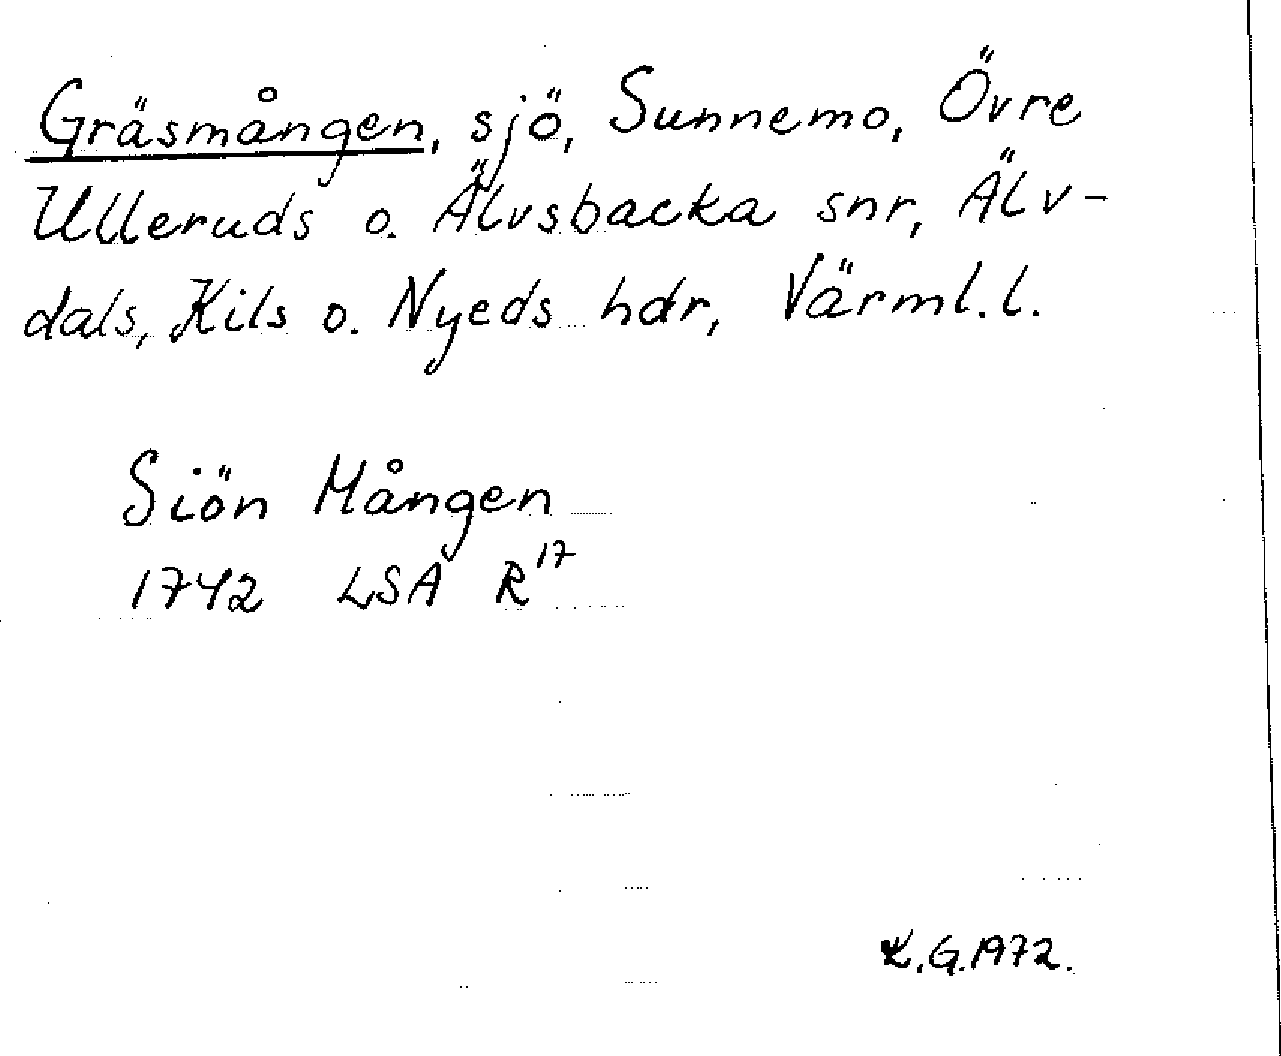 Gräsmången, sjö, Sunnemo, Övre
Ulleruds o. Älvsbacka snr, Älv-
dals, Kils o. Nyeds hdr, Värml. l.
Siön Mången
1742 LSA R17
K.G.1972.